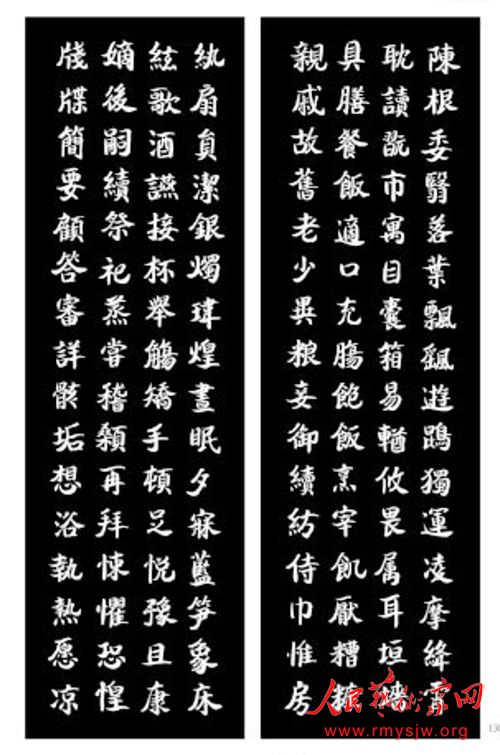 陳根委翳落葉飄飖遊鵾獨運凌摩絳霄
耽讀翫市寓目囊箱易輶攸畏属耳垣墻
具膳餐飯適口充腸飽飯烹宰飢厭糟糠
親戚故舊老少異粮妾御績紡侍巾帷房
紈扇員潔銀燭瑋煌晝眠夕寐藍笋象床
絃歌酒讌接杯舉觴矯手頓足悦豫且康
嫡後嗣續祭祀蒸嘗稽顙再拜悚懼恐惶
牋牒簡要顧答審詳骸垢想浴執熱愿凉
人民藝術家网
www.rmysjw.org